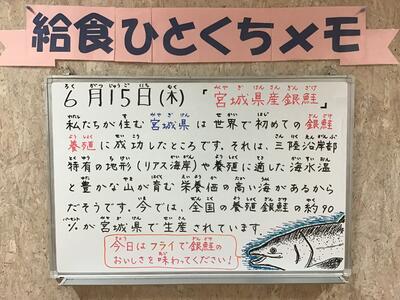 給食ひとくちメモ
6月15日(木) 「宮城県産銀鮭」
私たちが住む宮城県は世界で初めての銀鮭
養殖に成功したところです。それは、三陸沿岸部
特有の地形(リアス海岸)や養殖に適した海水温
と豊かな山が育む栄養価の高い海があるから
だそうです。今では、全国の養殖銀鮭の約90
%が宮城県で生産されています。
今日はフライで銀鮭の
おいしさを味わってください!